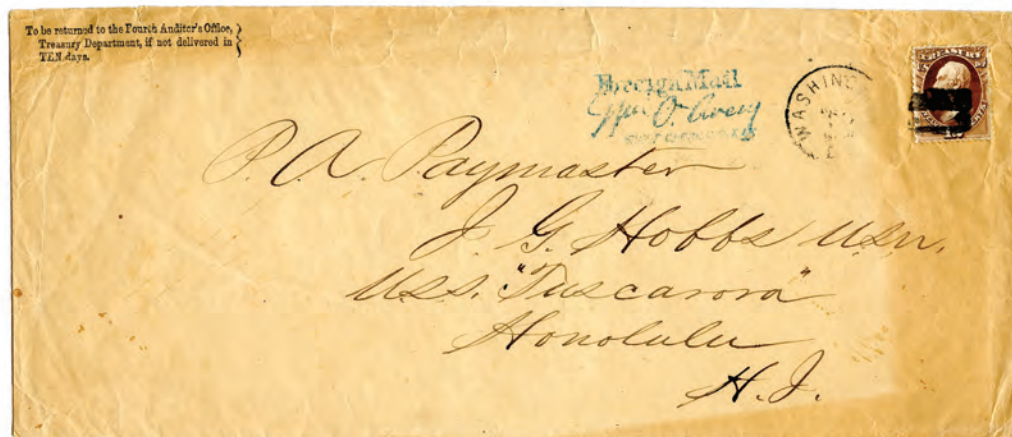 To be returned to the Fourth Auditor's Office,
Treasury Department, if not delivered in
TEN days.
Foreign Mail
O. Avery
WASHING
P. A. Paymaster
J. G. Hobbs USN.
USS. "Tuscarora"
Honolulu
H.I.